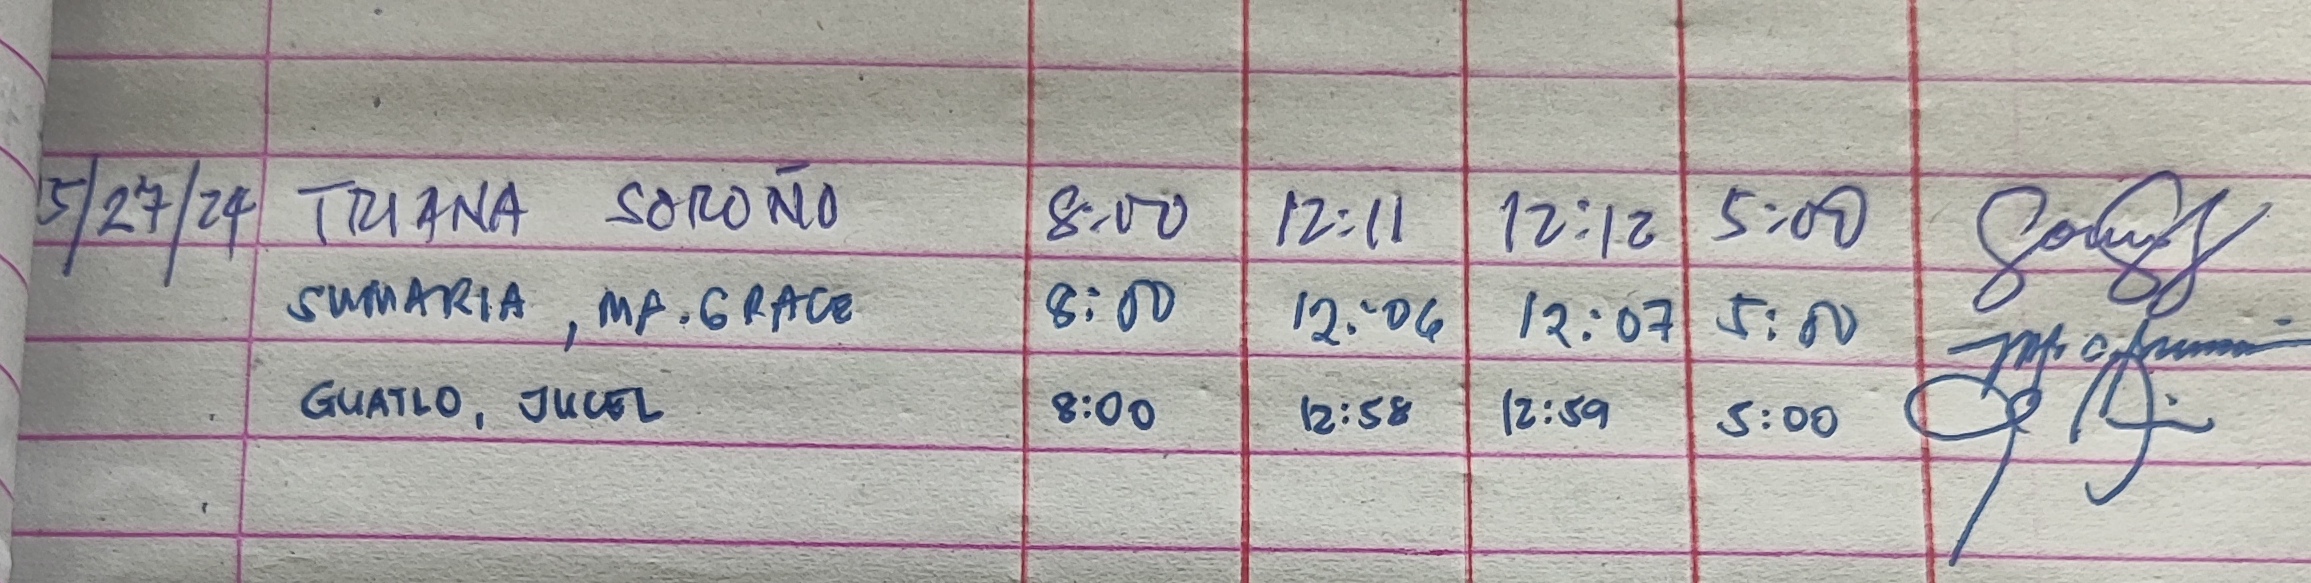 5/27/24 TRIANA SOROÑO 8:00 12:11 12:12 5:00
SUMARIA, MA. GRACE 8:00 12:06 12:07 5:00
GUATLO, JUCEL 8:00 12:58 12:59 5:00